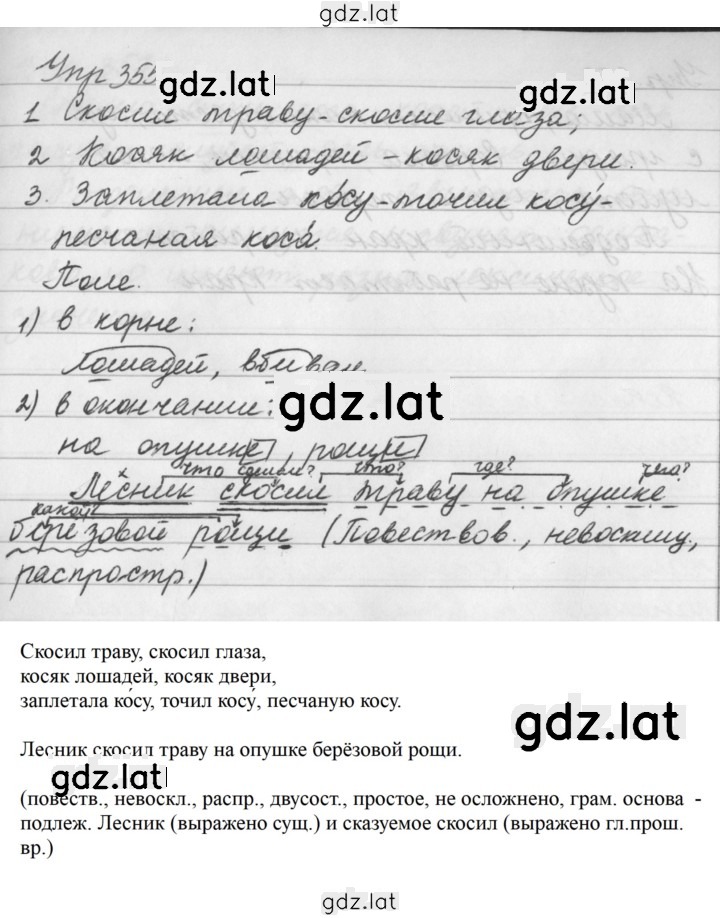 gdz.lat
Упр 355
gdz.lat
1 Скосил траву - скосил глаза;
2 Косяк лошадей - косяк двери.
3. Заплетала ко́су - точил косу́ -
песчаная коса́.
Поле.
1) в корне:
лошадей, вбивал
gdz.lat
2) в окончании:
на опушке, рощи
что сделал? что? где? чего?
Лесник скосил траву на опушке
какой
берёзовой рощи (Повествов., невосклиц,
распростр.)
Скосил траву, скосил глаза,
косяк лошадей, косяк двери,
заплетала ко́су, точил косу́, песчаную косу.
gdz.lat
Лесник скосил траву на опушке берёзовой рощи.
gdz.lat
(повеств., невоскл., распр., двусост., простое, не осложнено, грам. основа -
подлеж. Лесник (выражено сущ.) и сказуемое скосил (выражено гл.прош.
вр.)
gdz.lat